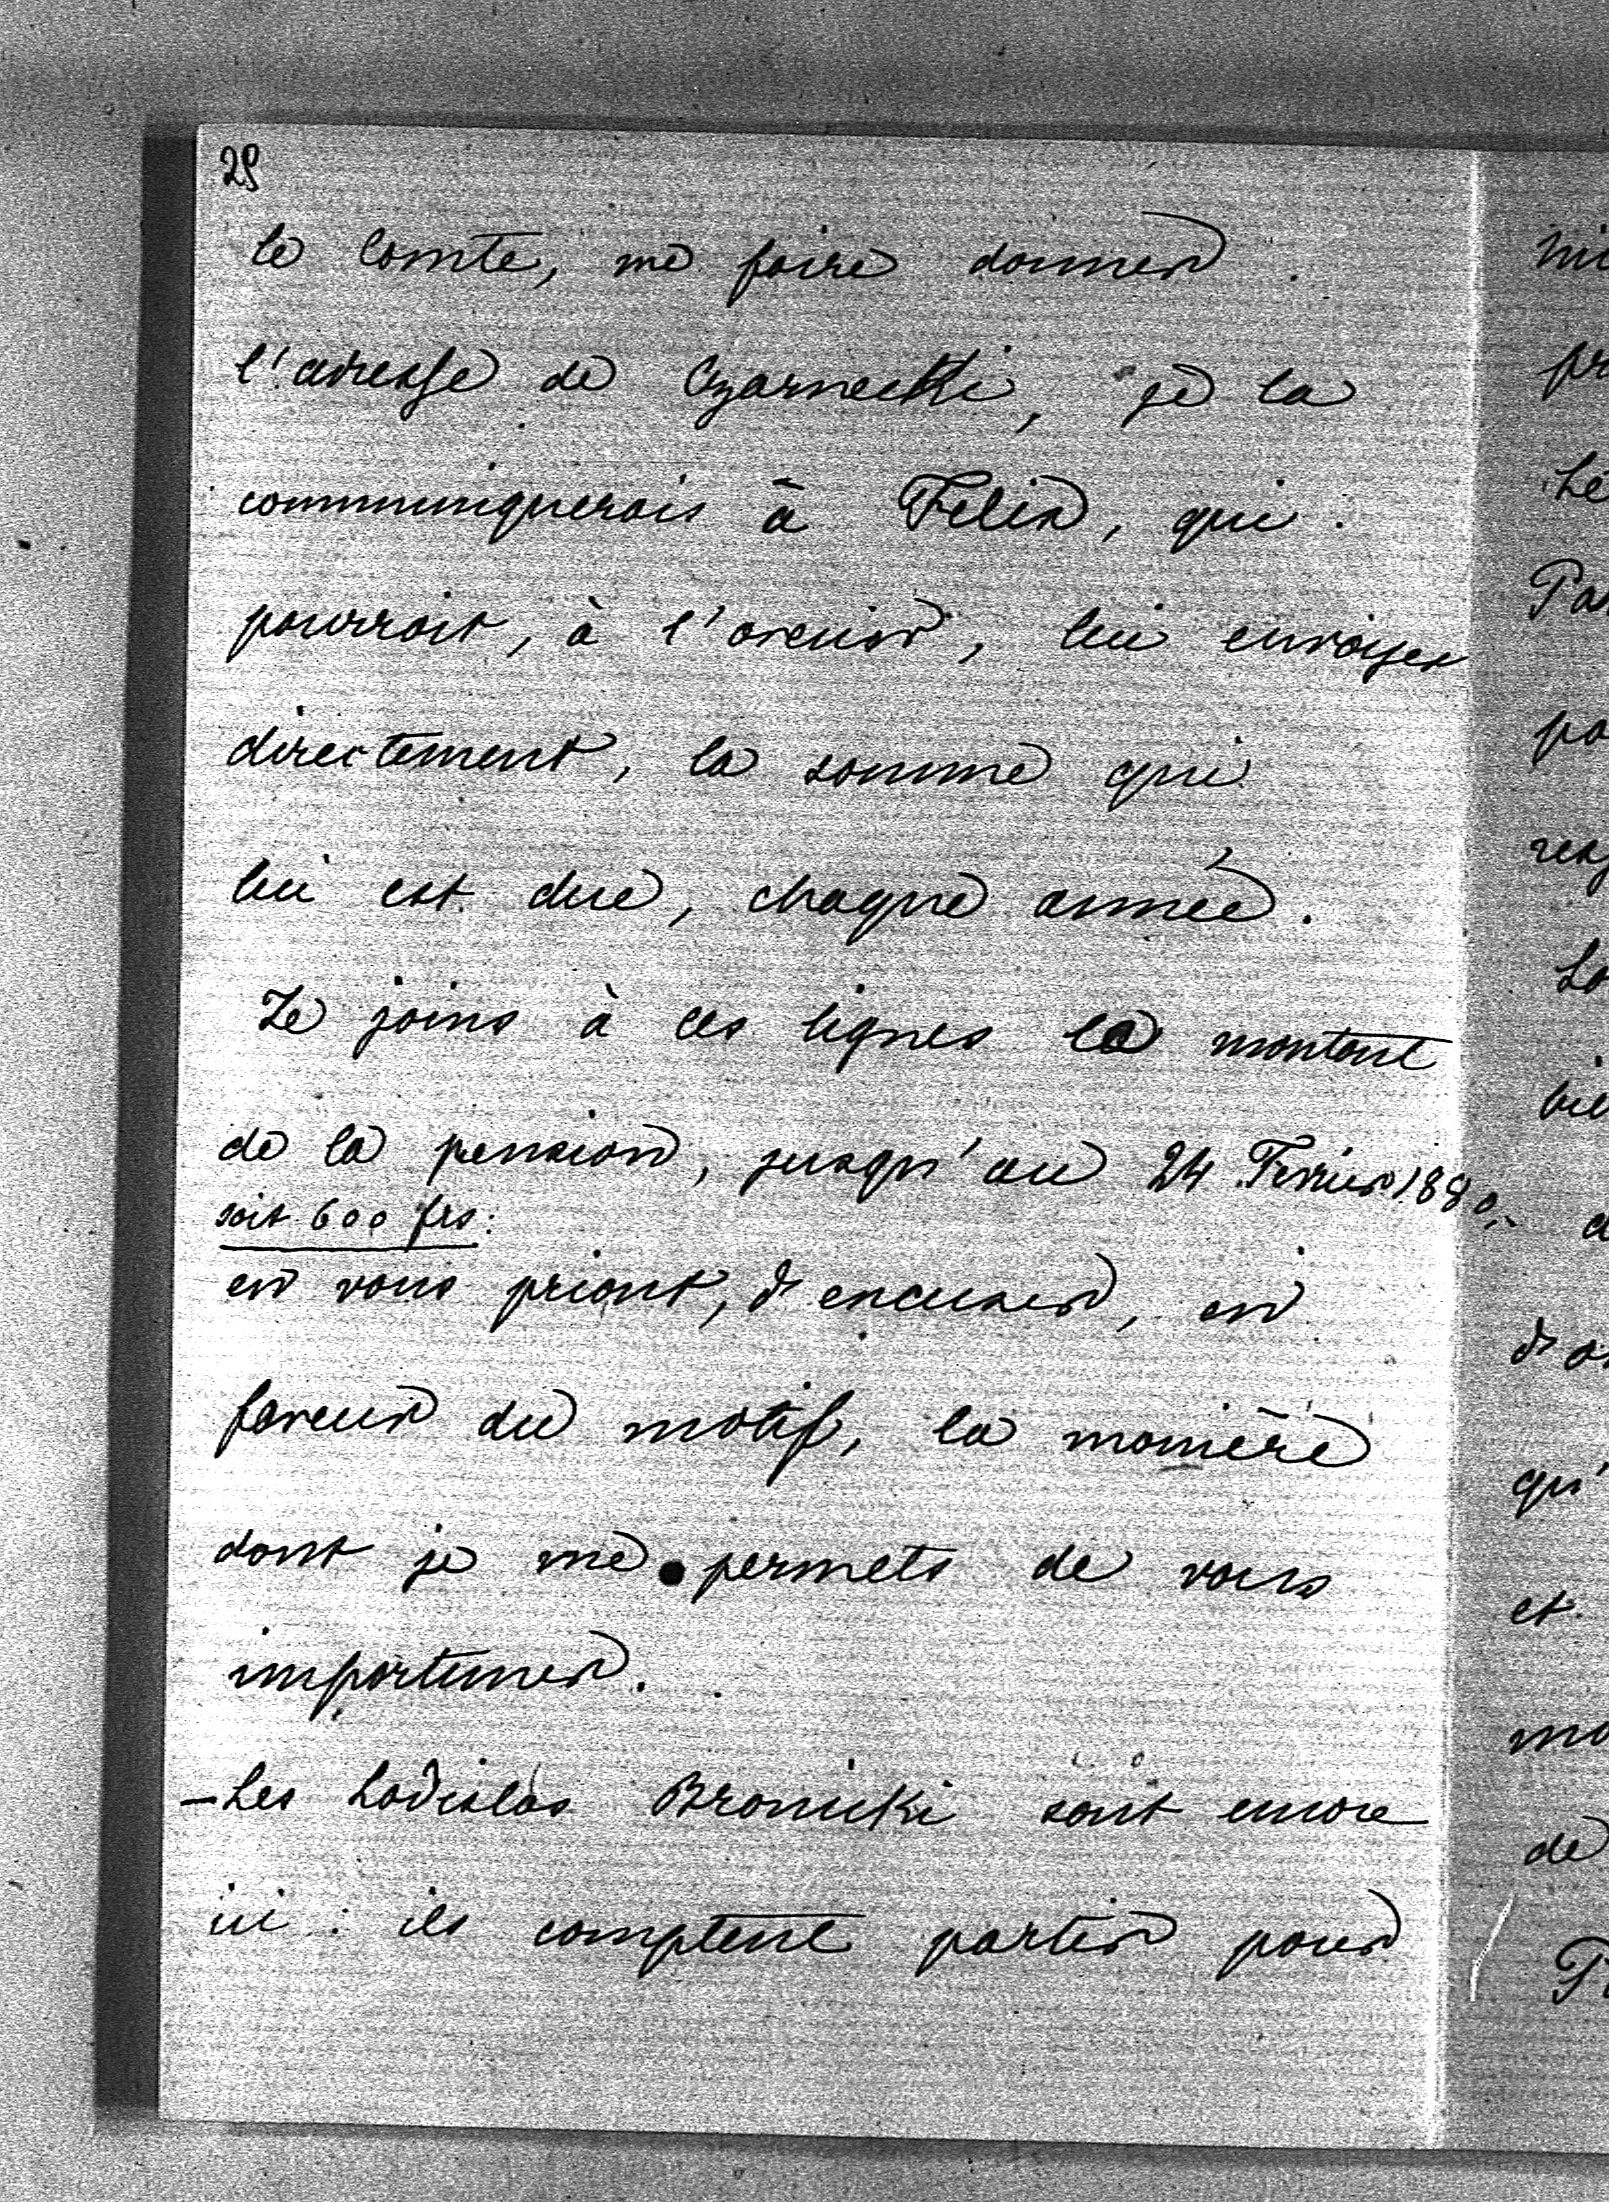 29
le Comte, me faire donner
l'adresse de Czarnecki, je la
communiquerais à Felix, qui
pourrait, à l'avenir, lui envoyer
directement, la somme qui
lui est due, chaque année.
Je joins à ces lignes le montant
de la pension, jusqu'au 24 Fevrier 1880,
soit 600 frs:
en vous priant, d'excuser, en
faveur du motif, la manière
dont je me permets de vous
importuner.
- Les Ladislas Bronicki sont encore
ici : ils comptent partir pour